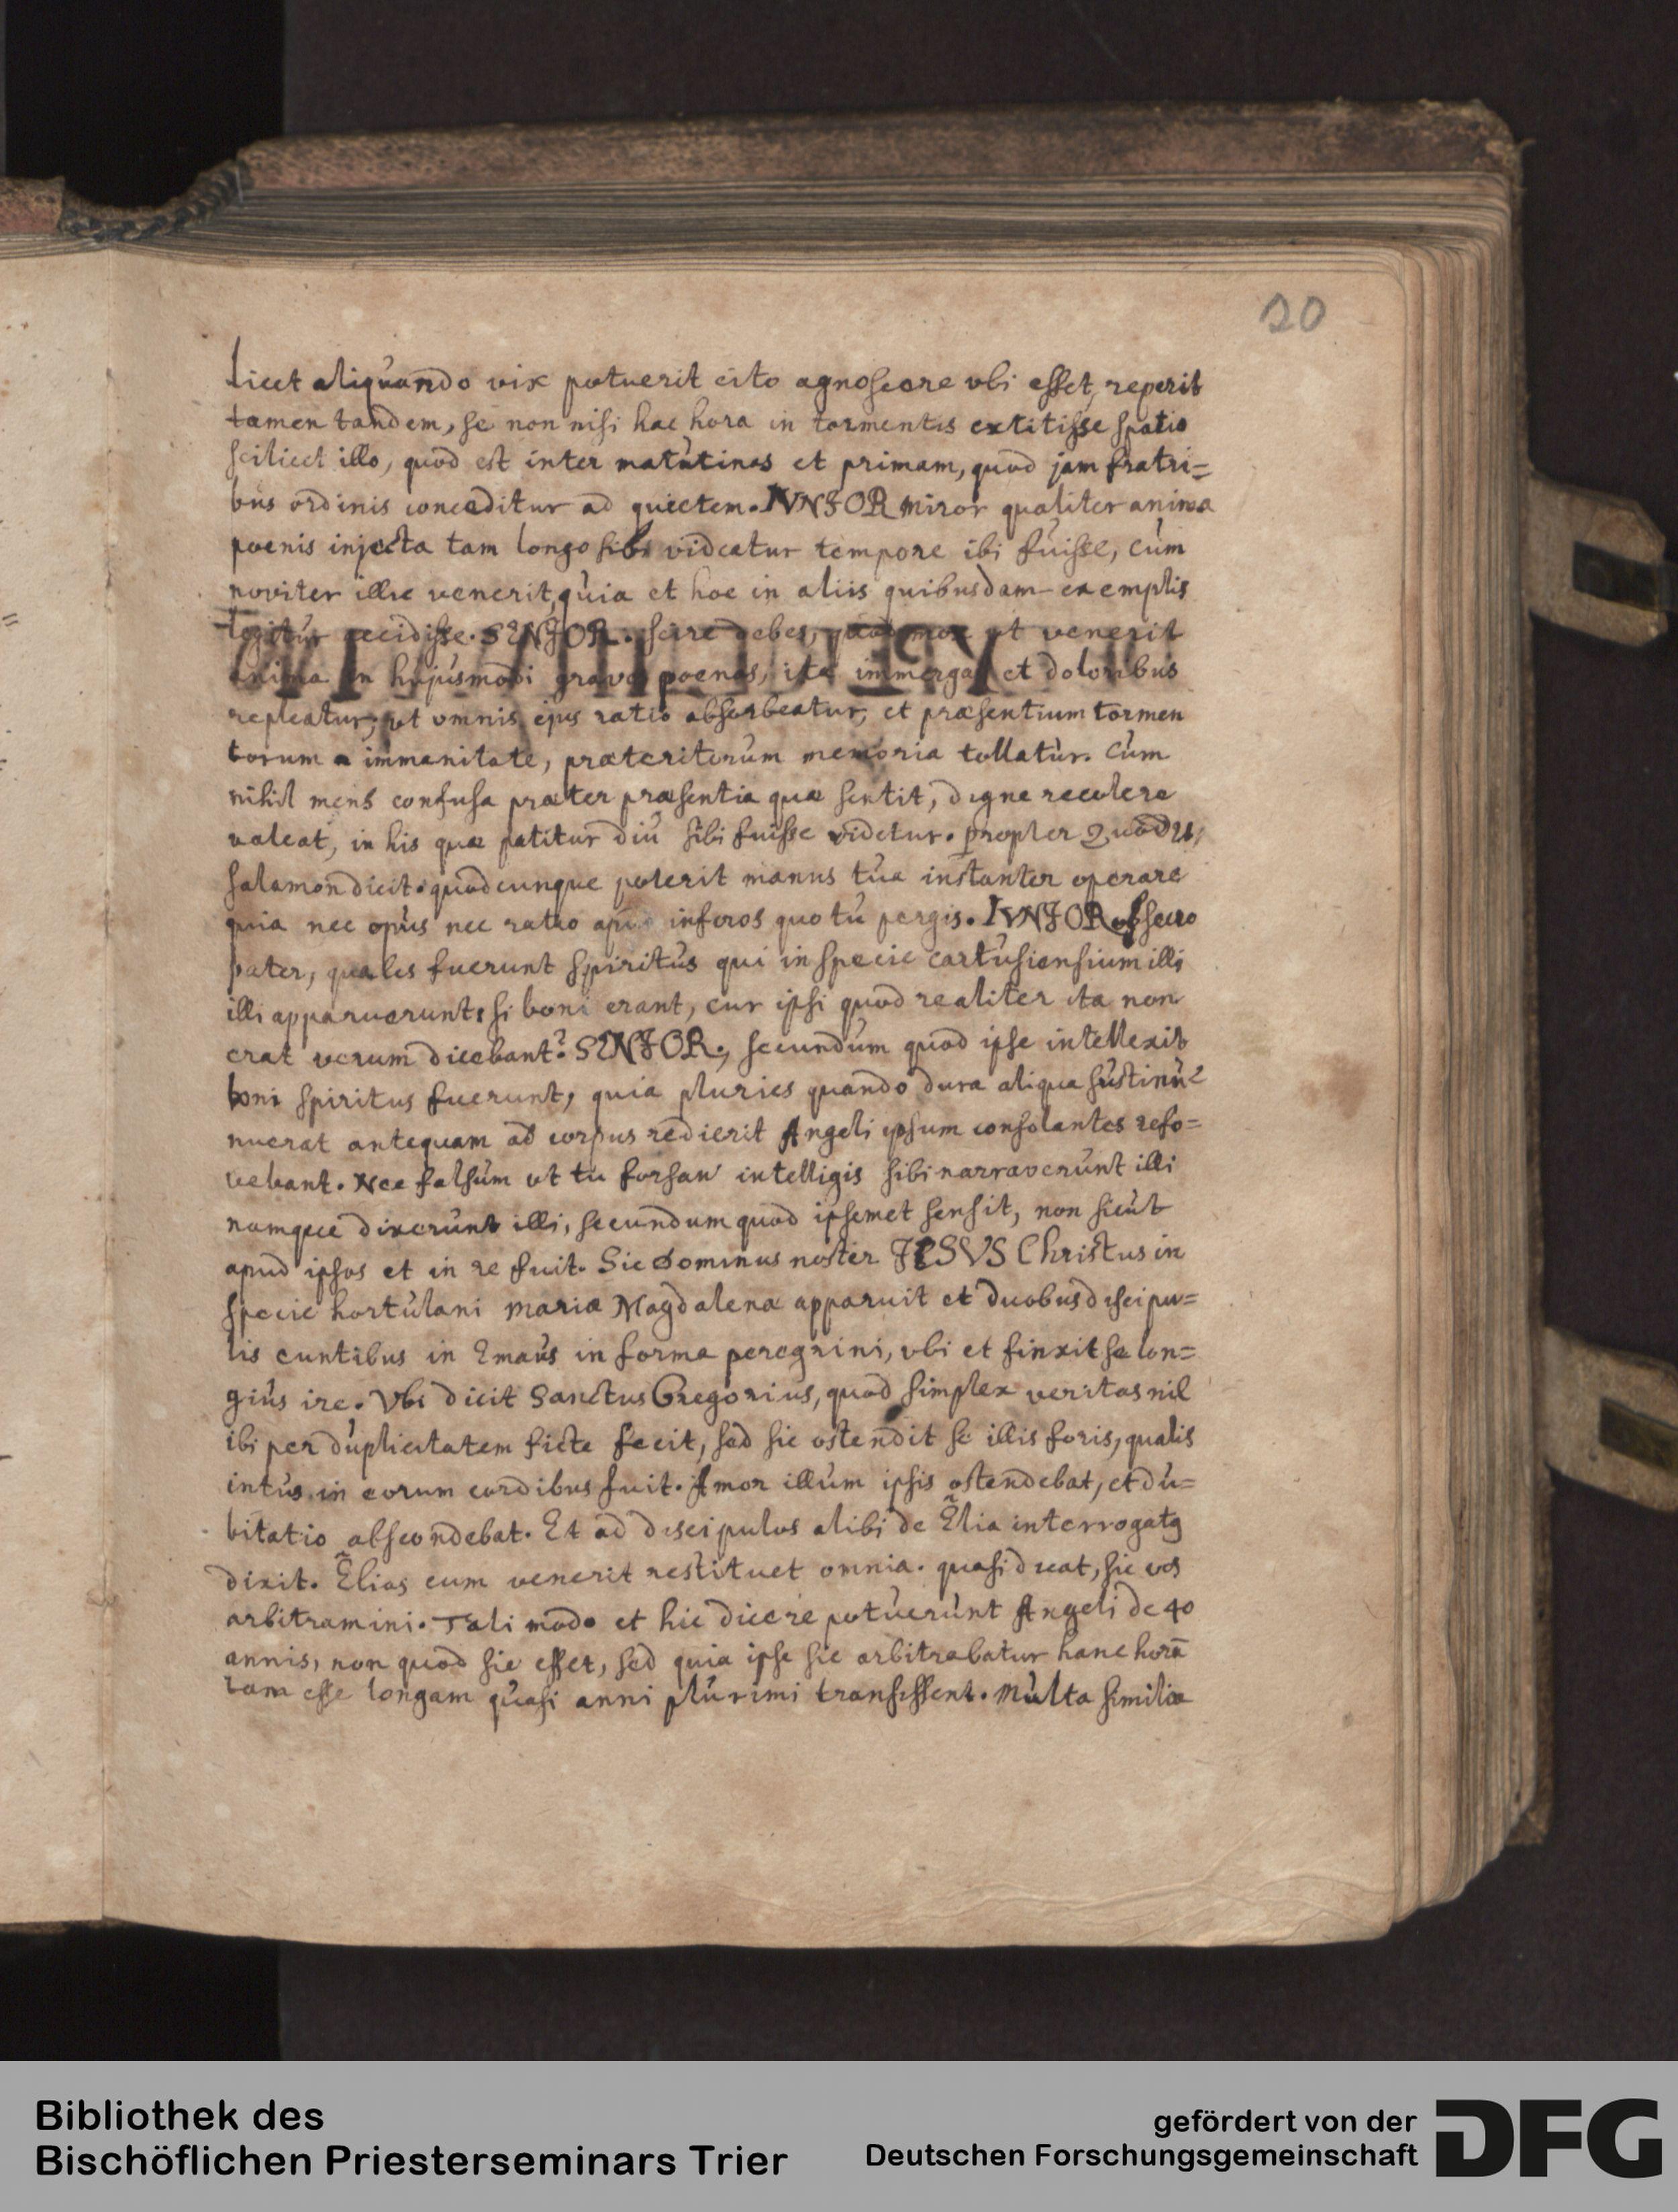 20
licet aliquando vix potuerit cito agnoscere vbi esset, reperit
tamen tandem, se non nisi hac hora in tormentis extitisse spatio
scilicet illo, quod est inter matutinas et primam, quod jam fratri=
bus ordinis conceditur ad quietem. IVNJOR miror qualiter anima
poenis injecta tam longo sibi videatur tempore ibi fuisse, cùm
noviter illuc venerit, quia et hoc in aliis quibusdam exemplis
legitur accidisse. SENJOR. scire debes, quod mox ut venerit
anima in hujusmodi graves poenas, ita immergat et doloribus
repleatur, ut omnis ejus ratio absorbeatur, et præsentium tormen
torum a immanitate, præteritorum memoria tollatur. Cùm
nihil mens confusa præter præsentia quæ sentit, digne recolere
valeat, in his quæ patitur diù sibi fuisse videtur. propter Quod
salamon dicit. quodcunque poterit manus tua instanter operare
quia nec opus nec ratio apud inferos quo tu pergis. IVNJOR obsecro
pater, quales fuerunt spiritus qui in specie cartusiensium illi
illi apparuerunt: si boni erant, cur ipsi quod realiter ita non
erat verum dicebant? SENJOR., secundum quod ipse intellexit
boni spiritus fuerunt, quia pluries quando dura aliqua sustinu=
nuerat antequam ad corpus redierit Angeli ipsum consolantes refo=
vebant. Nec falsum ut tu forsan intelligis sibi narraverunt illi
namque dixerunt illi, secundum quod ipsemet sensit, non sicut
apud ipsos et in re fuit. Sic Dominus noster JESVS Christus in
specie hortulani Mariæ Magdalenæ apparuit et duobus discipu=
lis euntibus in Emaus in forma peregrini, vbi et finxit se lon=
gius ire. Vbi dicit Sanctus Gregorius, quod simplex veritas nil
ibi per duplicitatem ficte fecit, sed sic ostendit se illis foris, qualis
intus in eorum cordibus fuit. Amor illum ipsis ostendebat, et du=
bitatio abscondebat. Et ad discipulos alibi de Elia interrogatg
dixit. Elias cum venerit restituet omnia. quasi dicat, sic vos
arbitramini. Tali modo et hic dicere potuerunt Angeli de 40
annis, non quod sic esset, sed quia ipse sic arbitrabatur hanc horā
tam esse longam quasi anni plurimi transissent. Multa similia
Bibliothek des
Bischöflichen Priesterseminars Trier
gefördert von der
Deutschen Forschungsgemeinschaft
DFG